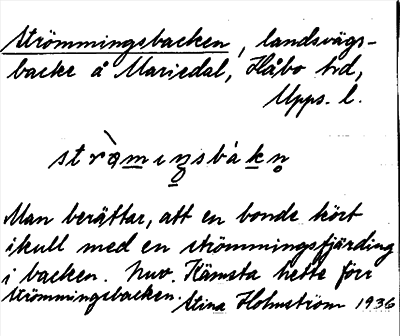 Strömmingsbacken, landsvägs-
backe å Mariedal, Håbo hd,
Upps. l.
strömiŋsbákn̥
Man berättar, att en bonde kört
ikull med en strömmingsfjärding
i backen. Nuv. Kämsta hette förr
Strömmingsbacken.
Stina Holmström 1936